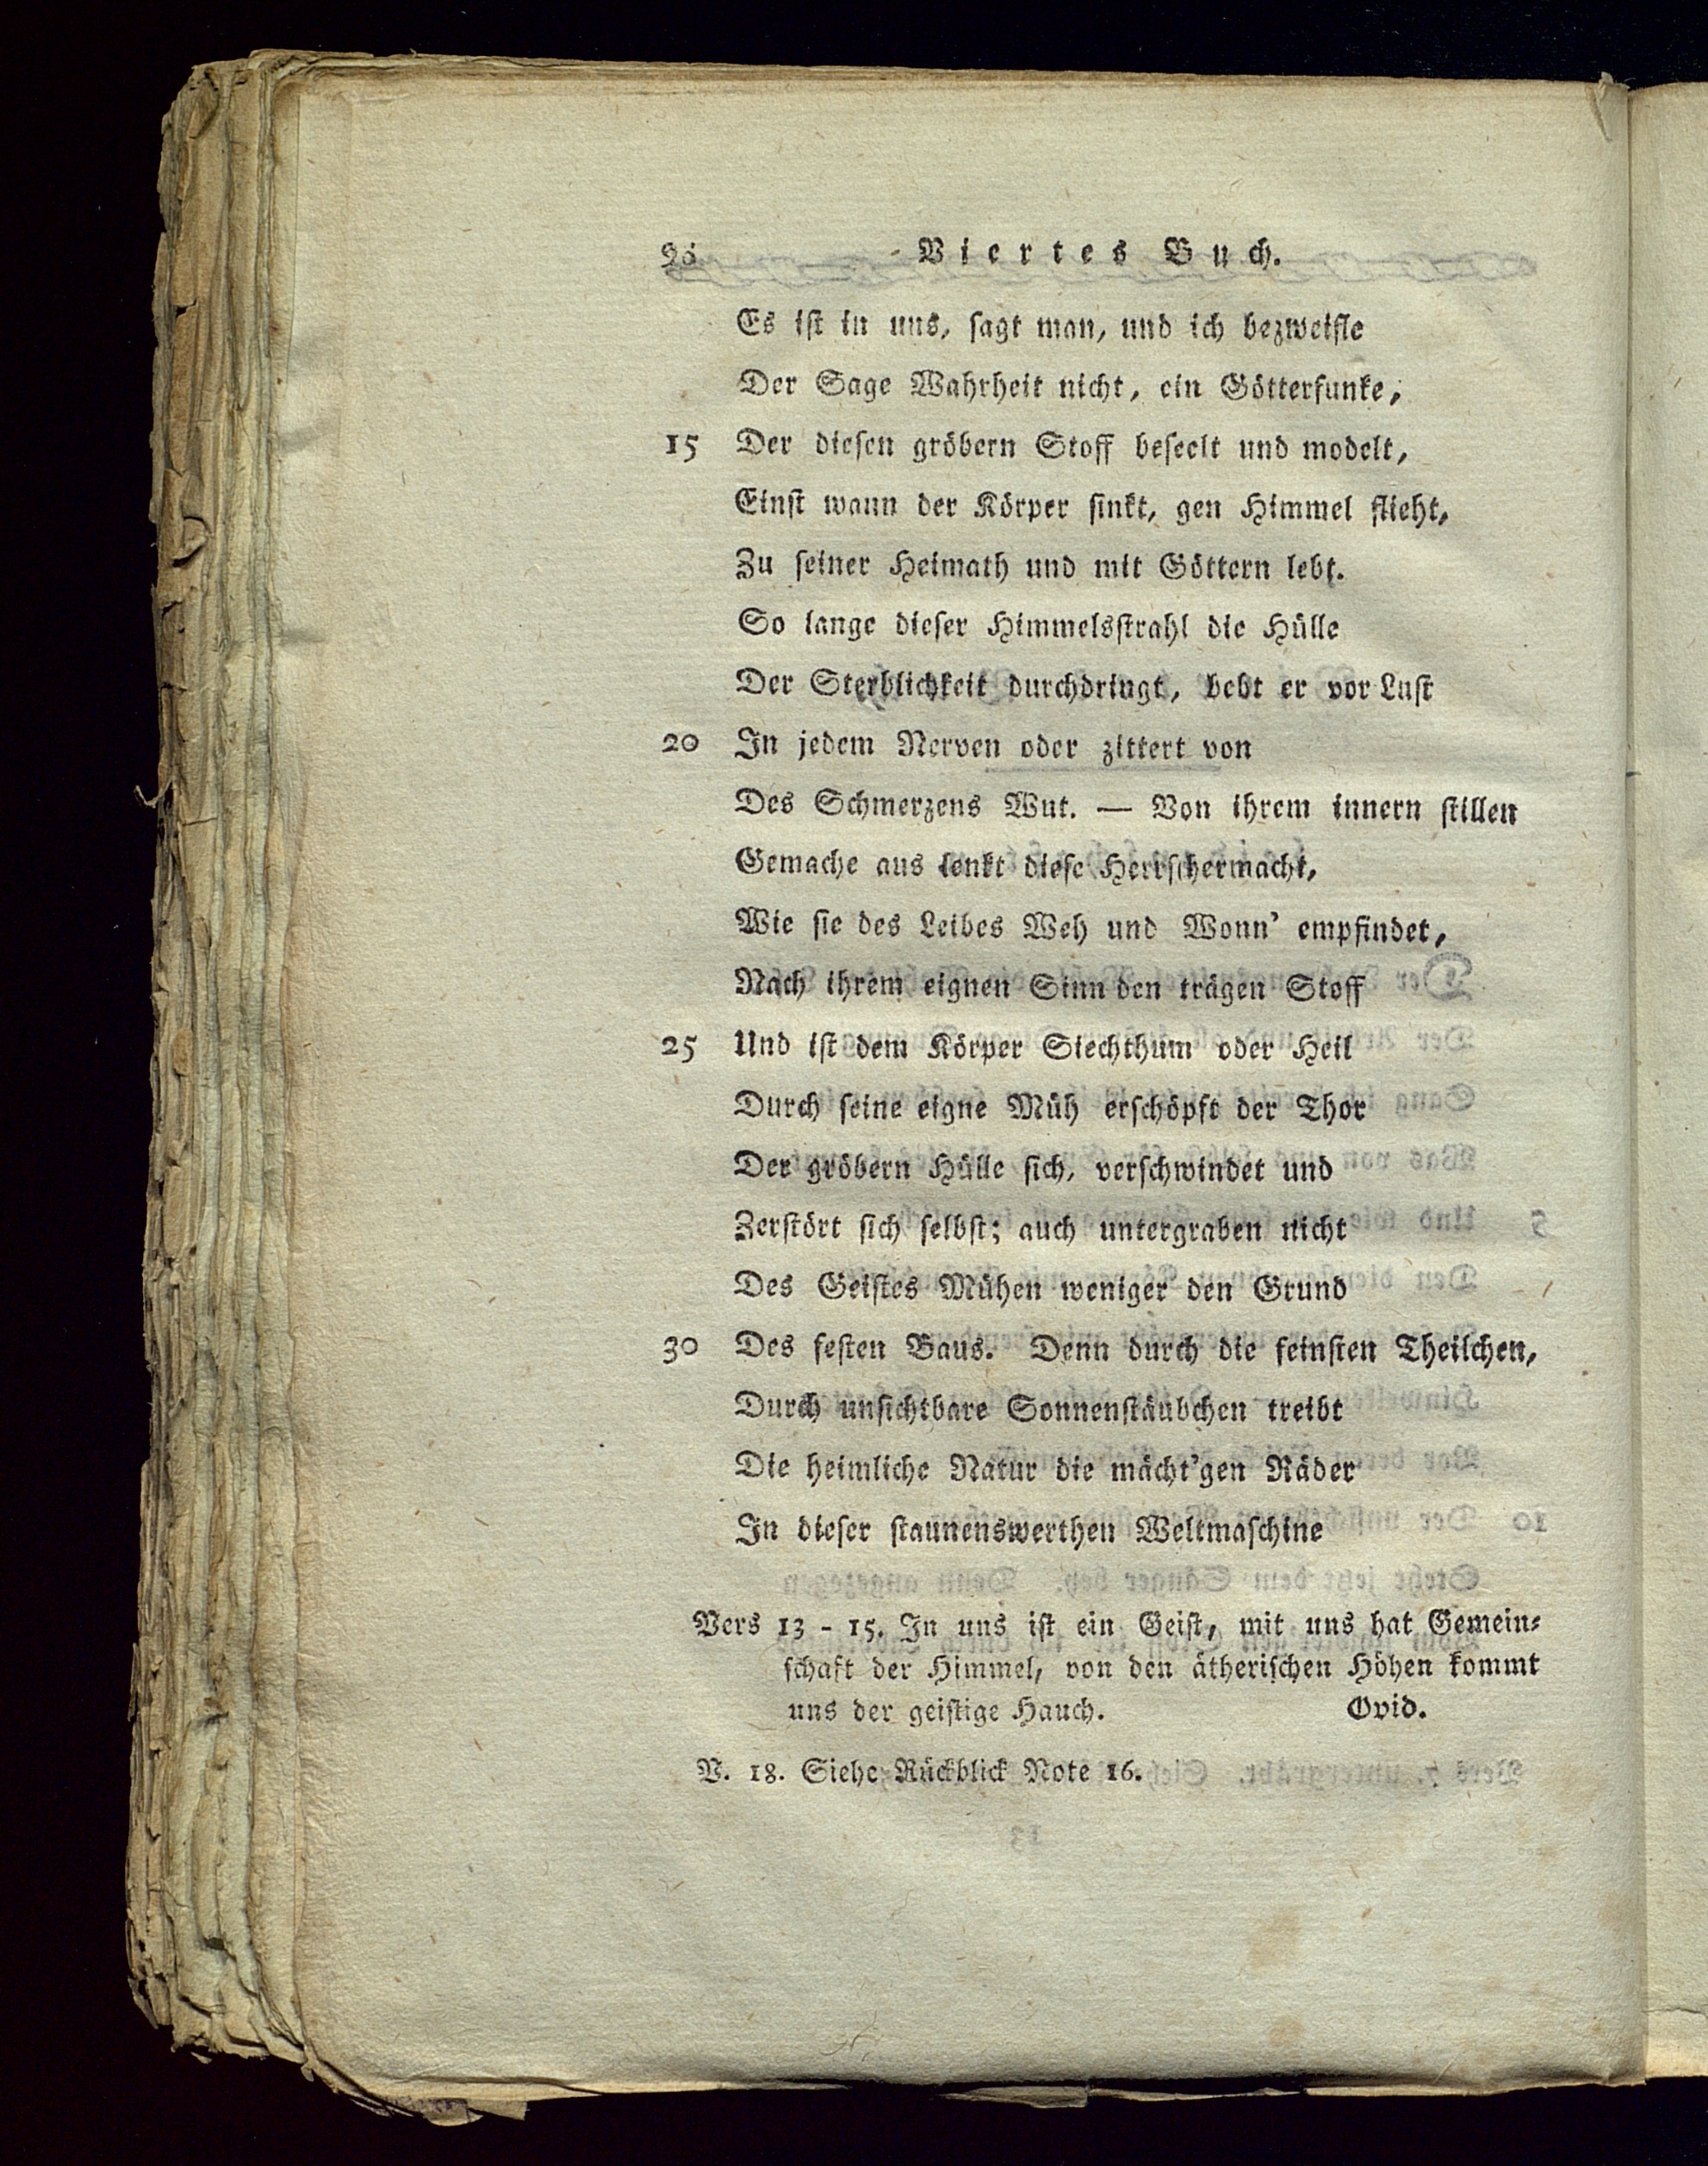 96 Viertes Buch.
Es iſt in uns, ſagt man, und ich bezweifle
Der Sage Wahrheit nicht, ein Götterfunke,
15 Der dieſen gröbern Stoff beſeelt und modelt,
Einſt wann der Körper ſinkt, gen Himmel flieht,
Zu ſeiner Heimath und mit Göttern lebt.
So lange dieſer Himmelsſtrahl die Hülle
Der Sterblichkeit durchdringt, bebt er vor Luſt
20 In jedem Nerven oder zittert von
Des Schmerzens Wut. — Von ihrem innern ſtillen
Gemache aus lenkt dieſe Herrſchermacht,
Wie ſie des Leibes Weh und Wonn' empfindet,
Nach ihrem eignen Sinn den trägen Stoff
25 Und iſt dem Körper Siechthum oder Heil
Durch ſeine eigne Müh erſchöpft der Thor
Der gröbern Hülle ſich, verſchwindet und
Zerſtört ſich ſelbſt; auch untergraben nicht
Des Geiſtes Mühen weniger den Grund
30 Des feſten Baus. Denn durch die feinſten Theilchen,
Durch unſichtbare Sonnenſtäubchen treibt
Die heimliche Natur die mächt'gen Räder
In dieſer ſtaunenswerthen Weltmaſchine
Vers 13 - 15. In uns iſt ein Geiſt, mit uns hat Gemein⸗
ſchaft der Himmel, von den ätheriſchen Höhen kommt
uns der geiſtige Hauch. Ovid.
V. 18. Siehe Rückblick Note 16.